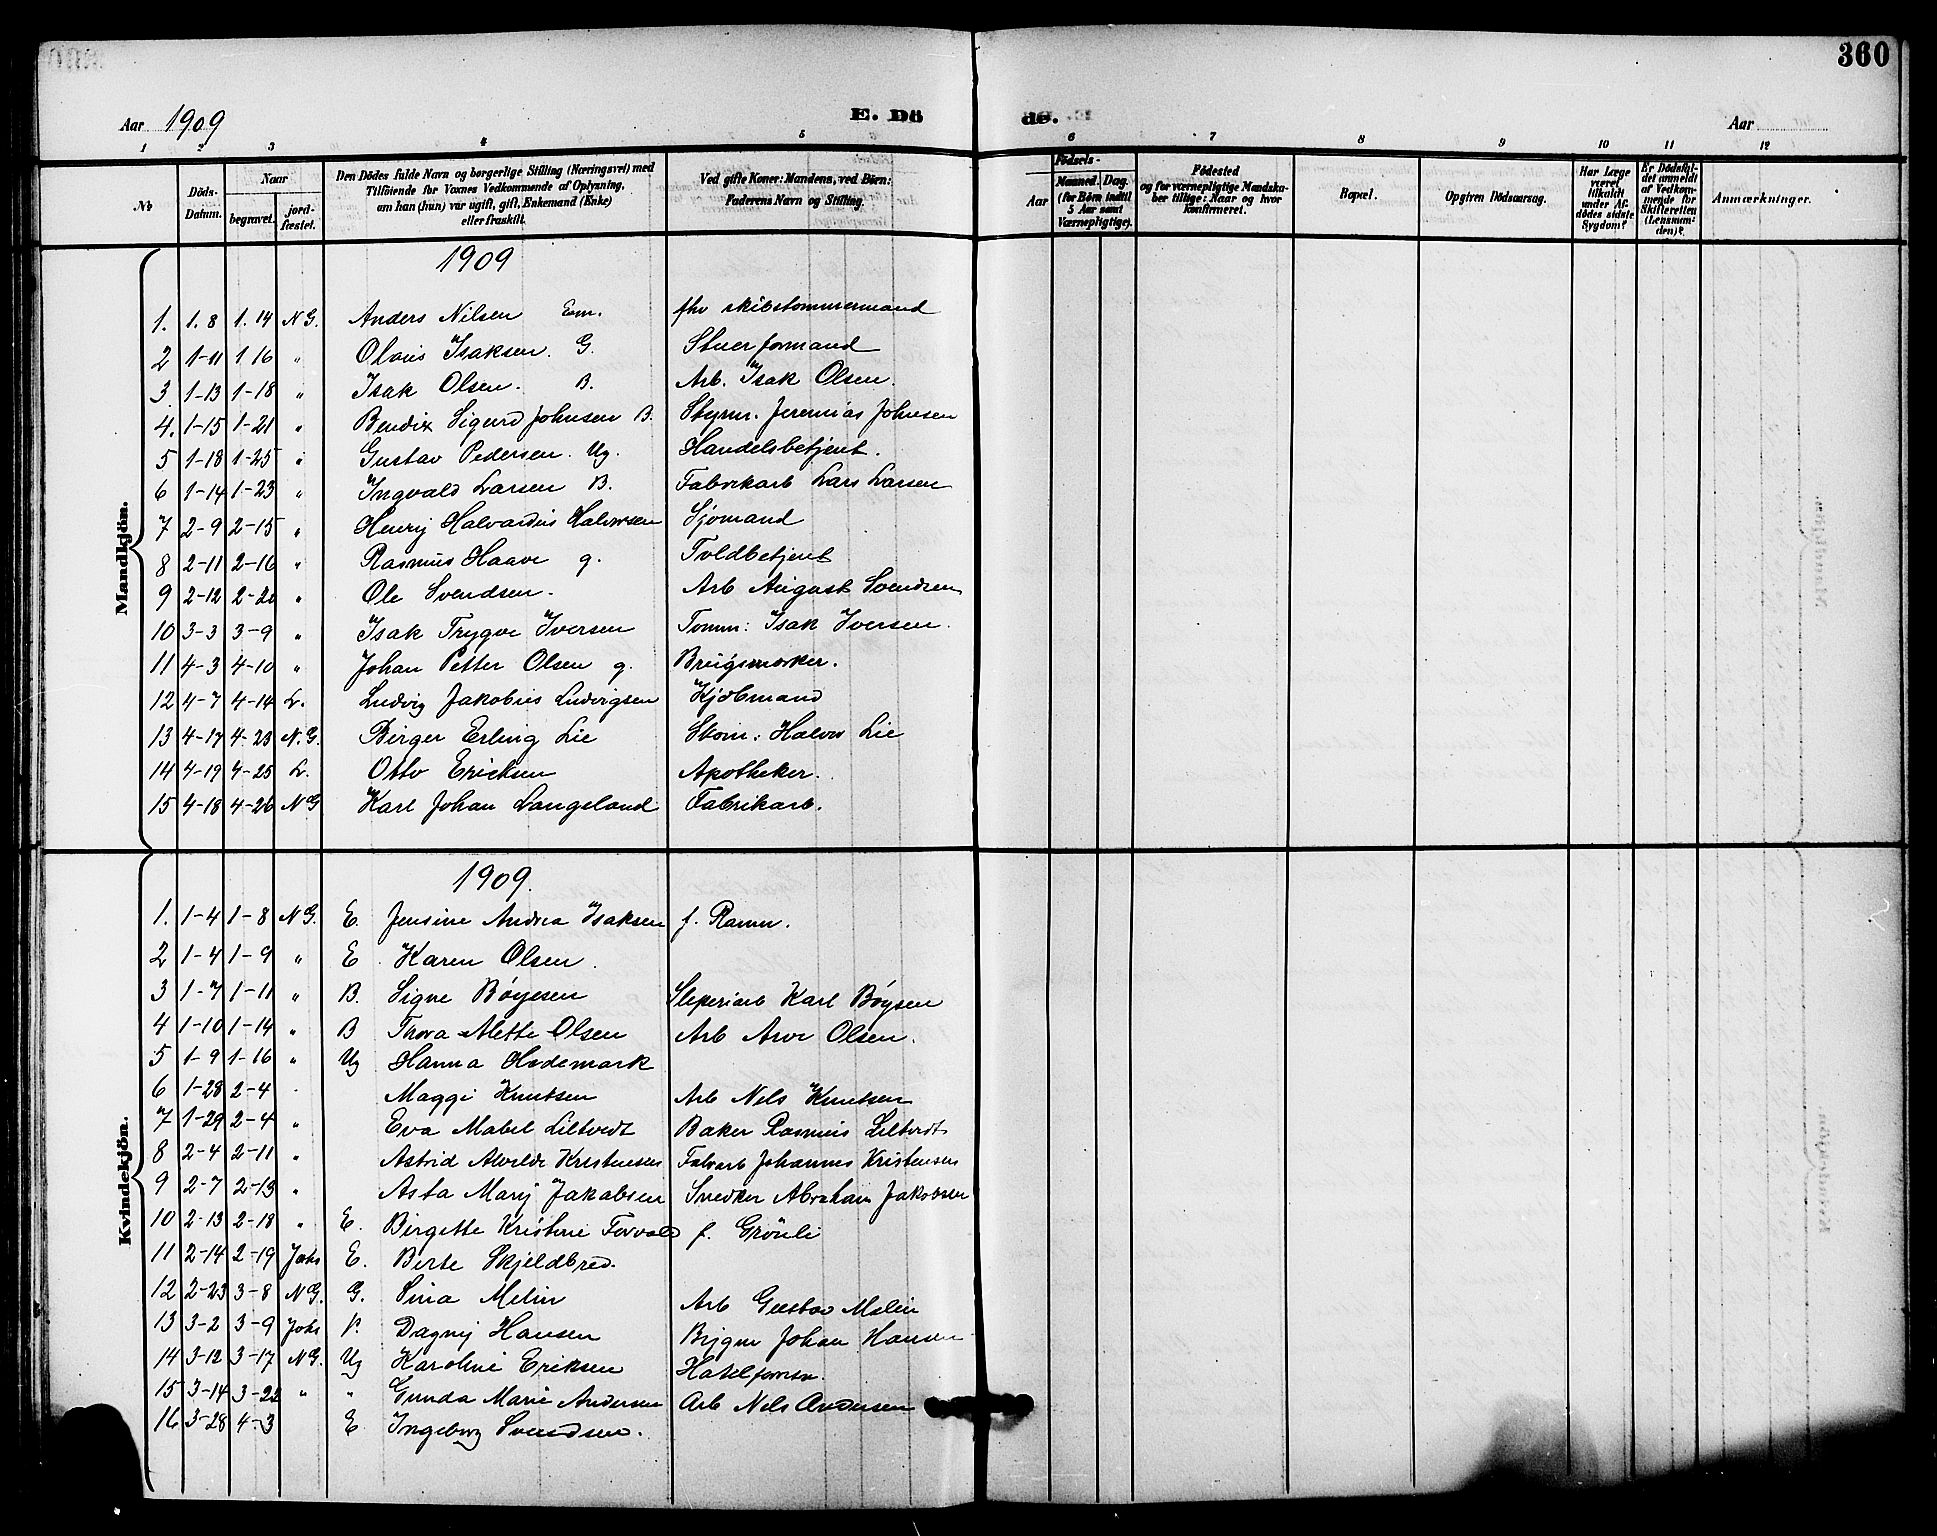 360
Aar 1909 E. Dö de. Aar
1 2 3 4 5 6 7 8 9 10 11 12
No Döds-Datum. Naar begravet. jord-fæstet. Den Dödes fulde Navn og borgerlige Stilling (Næringsvei) med Tilföiende for Voxnes Vedkommende af Oplysning, om han (hun) var ugift, gift, Enkemand (Enke) eller fraskilt. Ved gifte Koner: Mandens, ved Børn: Faderens Navn og Stilling. Födsels- Aar Maaned. Dag. (for Børn indtil 5 Aar samt Værnepligtige). Födested og for værnepligtige Mandskaber tillige: Naar og hvor Konfirmeret. Bopæl. Opgiven Dödsaarsag. Har Læge været tilkaldt under Afdödes sidste Sygdom? Er Dödsfaldet anmeldt af Vedkommende for Skifteretten (Lensmanden)? Anmærkninger.
Mandkjön.
1909
1. 1. 8 1. 14 N G. Anders Nilsen Em. fhv skibstømmermand
2 1-11 1 16 " Olous Isaksen. G. Stuerformand
3. 1-13 1-18 " Isak Olsen. B. Arb. Isak Olsen.
4. 1-15 1-21 " Bendix Sigurd Johnsen B. Styrm. Jeremias Johnsen
5 1-18 1-25 " Gustav Pedersen. Ug. Handelsbetjent.
6 1-14 1-23 " Ingvald Larsen B. Fabrikarb Lars Larsen
7 2-9 2-15 " Henry Halvardus Halvorsen Sjømand
8 2-11 2-16 " Rasmus Haave g. Toldbetjent
9 2-12 2-20 " Ole Svendsen. Arb August Svendsen
10 3-3 3-9 " Isak Trygve Iversen Tømm: Isak Iversen.
11 4-3 4-10 " Johan Petter Olsen g. Brugsmøker.
12 4-7 4-14 L. Ludvig Jakobus Ludvigsen Kjøbmand
13 4-17 4-23 N. G. Birger Erling Lie Skom: Halvor Lie
14 4-19 4-25 L. Otto Ericksen Apotheker.
15 4-18 4-26 N G Karl Johan Langeland Fabrikarb.
Kvindekjön.
1909.
1. 1-4 1-8 N G. E. Jensine Andrea Isaksen f. Ramn.
2 1-4 1-9 " E. Karen Olsen.
3 1-7 1-11 " B. Signe Bøyesen Sleperiarb Karl Bøysen
4 1-10 1-14 " B Thora Alette Olsen Arb Arve Olsen.
5 1-9 1-16 " Ug Hanna Hedemark
6 1-28 2-4 Maggi Knutsen Arb Nels Knutsen
7 1-29 2-4 " Eva Mabel Liltvedt Baker Rasmus Liltvedt
8 2-4 2-11 " Astrid Alvilde Kristensen Fabarb Johannes Kristensen
9 2-7 2-13 " Asta Mary Jakobsen Snedker Abraham Jakobsen
10 2-13 2-18 " E. Birgitte Kristine Torvald f. Grönli
11 2-14 2-19 Johs E. Berte Skjeldbred.
12 2-23 3-8 N G. G. Sina Melin Arb Gustav Melin
13 3-2 3-9 Johs Dagny Hansen Bygm Johan Hansen
14 3-12 3-17 N G. Ug Karoline Eriksen
15 3-14 3-22 " " Gunda Marie Andersen Arb Nels Andersen
16 3-28 4-3 E Ingeborg Svendsen.